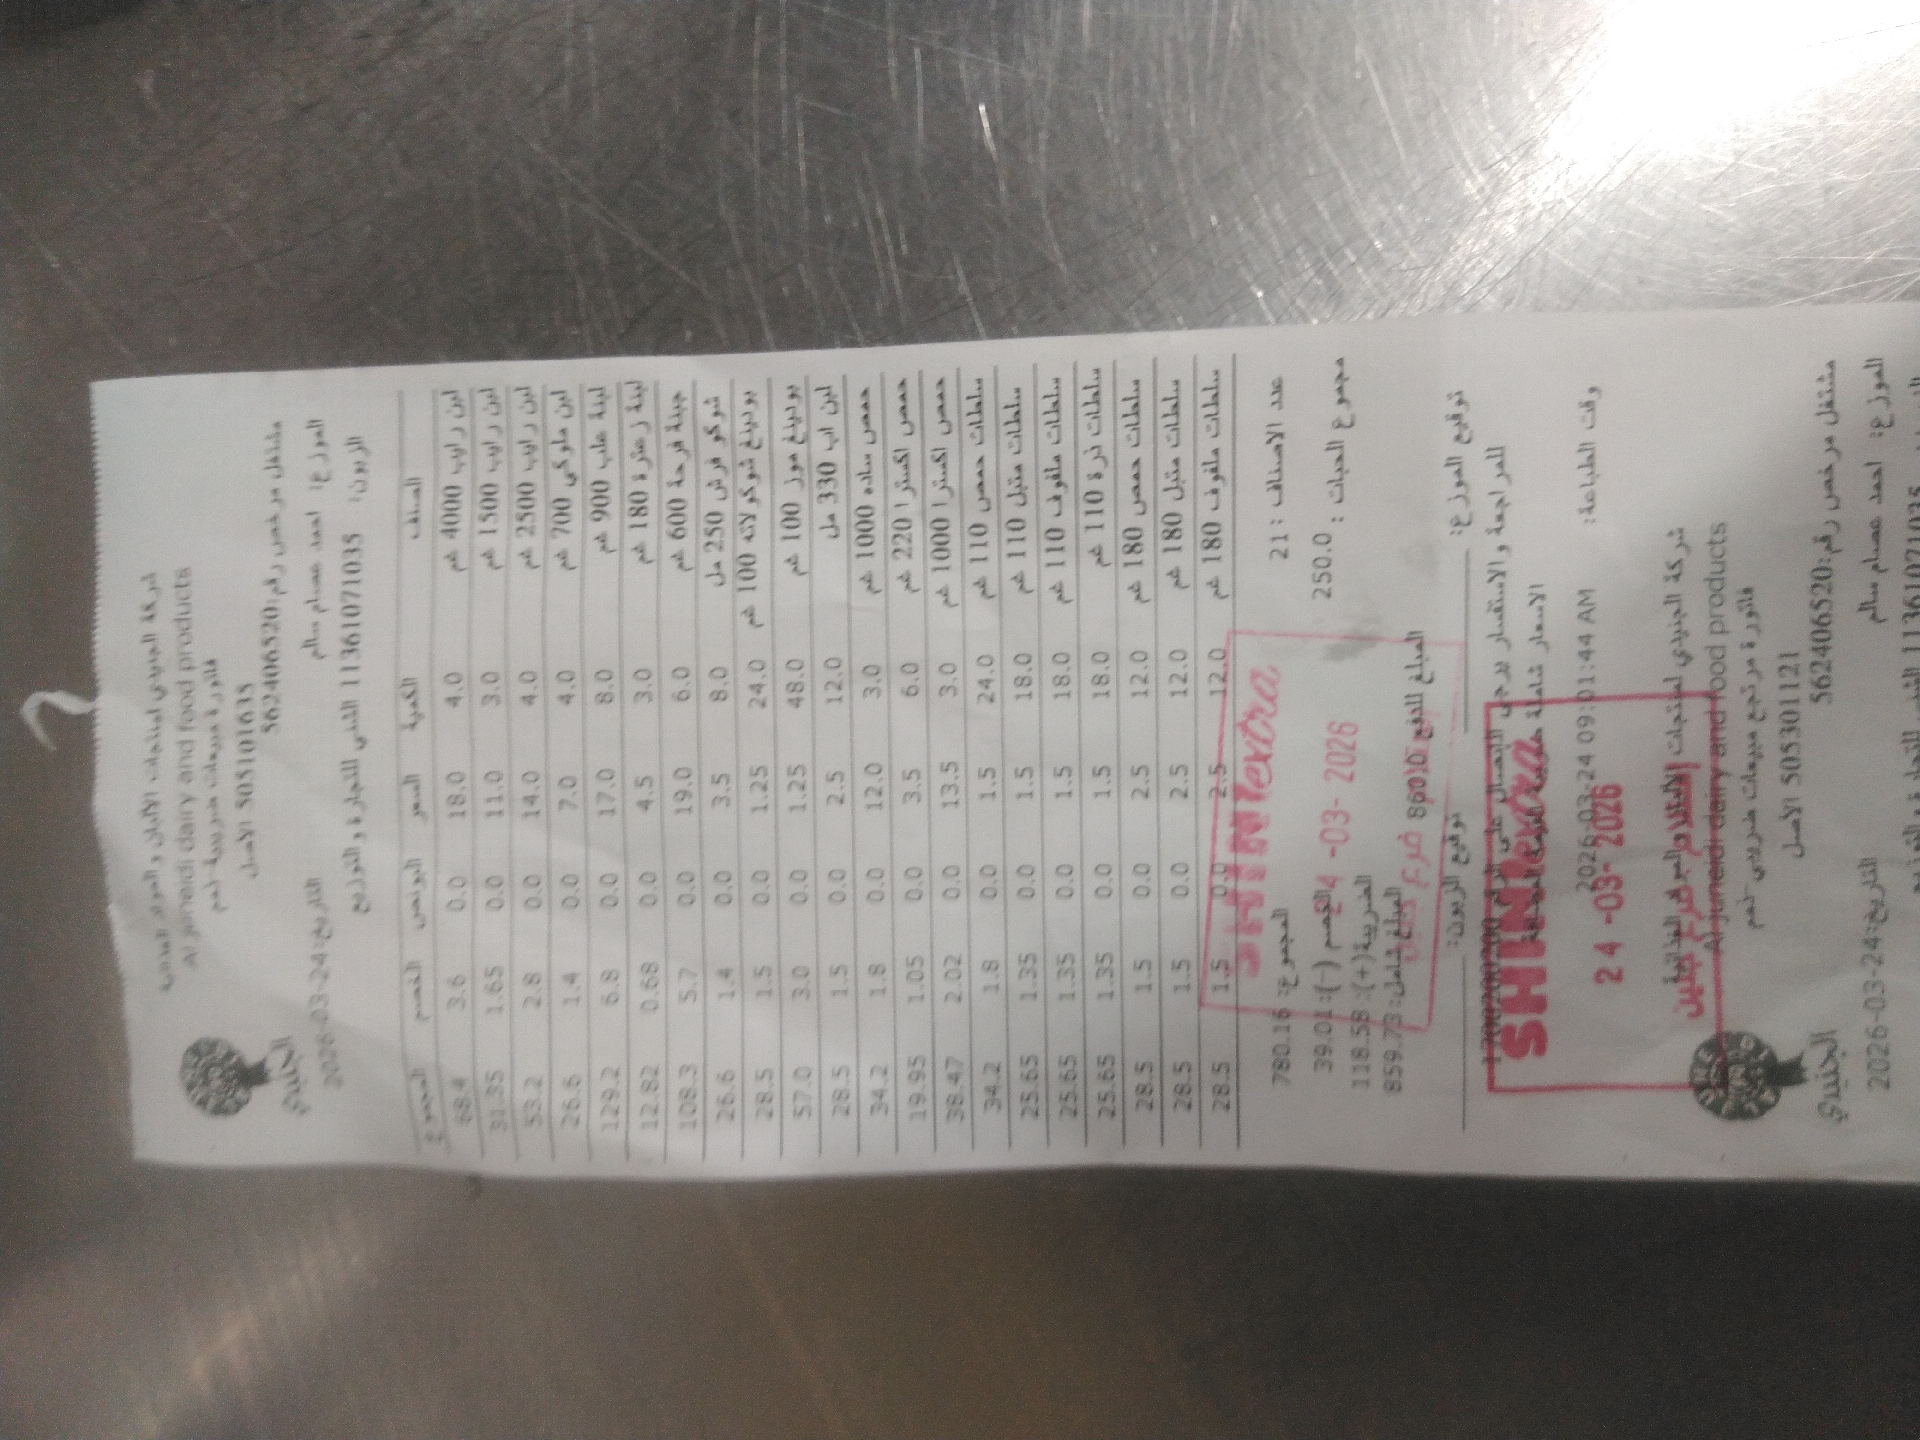 شركة الجنيدي لمنتجات الالبان و المواد الغذائية
Al juneidi dairy and food products
فاتورة مبيعات ضريبية-ثمم
505101635 الاصل
مشتغل مرخص رقم:562406520
الجنيدي
الموزع: احمد عصام سالم التاريخ:2026-03-24
الزبون: 11361071035 الشني للتجارة و التوزيع
الصنف الكمية السعر البونص الخصم المجموع
لبن رايب 4000 غم 4.0 18.0 0.0 3.6 68.4
لبن رايب 1500 غم 3.0 11.0 0.0 1.65 31.35
لبن رايب 2500 غم 4.0 14.0 0.0 2.8 53.2
لبن ملوكي 700 غم 4.0 7.0 0.0 1.4 26.6
لبنة علب 900 غم 8.0 17.0 0.0 6.8 129.2
لبنة زعترة 180 غم 3.0 4.5 0.0 0.68 12.82
جبنة فرحة 600 غم 6.0 19.0 0.0 5.7 108.3
شوكو فرش 250 مل 8.0 3.5 0.0 1.4 26.6
بودينغ شوكولاته 100 غم 24.0 1.25 0.0 1.5 28.5
بودينغ موز 100 غم 48.0 1.25 0.0 3.0 57.0
لبن اب 330 مل 12.0 2.5 0.0 1.5 28.5
حمص ساده 1000 غم 3.0 12.0 0.0 1.8 34.2
حمص اكسترا 220 غم 6.0 3.5 0.0 1.05 19.95
حمص اكسترا 1000 غم 3.0 13.5 0.0 2.02 38.47
سلطات حمص 110 غم 24.0 1.5 0.0 1.8 34.2
سلطات متبل 110 غم 18.0 1.5 0.0 1.35 25.65
سلطات ملفوف 110 غم 18.0 1.5 0.0 1.35 25.65
سلطات ذرة 110 غم 18.0 1.5 0.0 1.35 25.65
سلطات حمص 180 غم 12.0 2.5 0.0 1.5 28.5
سلطات متبل 180 غم 12.0 2.5 0.0 1.5 28.5
سلطات ملفوف 180 غم 12.0 2.5 0.0 1.5 28.5
SHINIextra
عدد الاصناف : 21 المجموع: 780.16
مجموع الحبات : 250.0 الخصم (-): 39.01
24 -03- 2026
الضريبة(+): 118.58
المبلغ شامل: 859.73
المبلغ للدفع
توقيع الموزع: توقيع الزبون:
للمراجعة و الاستفسار يرجى الاتصال على الرقم 1700200200
الاسعار شاملة ضريبة القيمة المضافة
SHINIextra
وقت الطباعة: 2026-03-24 09:01:44 AM
24 -03- 2026
شركة الجنيدي لمنتجات الالبان و المواد الغذائية
Al juneidi dairy and food products
فاتورة مرتجع مبيعات ضريبي-ثمم
505301121 الاصل
مشتغل مرخص رقم:562406520
الجنيدي
الموزع: احمد عصام سالم التاريخ:2026-03-24
11361071035 الشني للتجارة و التوزيع